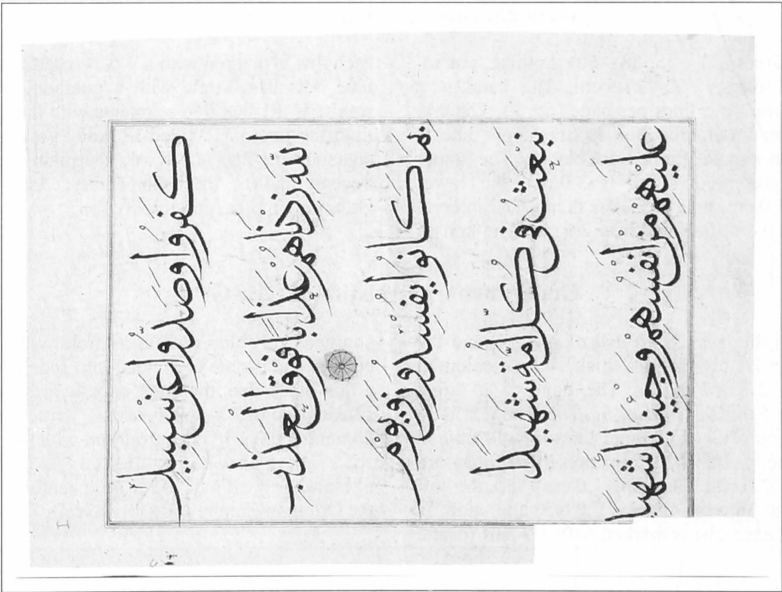 كفروا وصدوا عن سبيل
الله زدنهم عذابا فوق العذاب
بما كانوا يفسدون ويوم
نبعث في كل امة شهيدا
عليهم من انفسهم وجينا بك شهيدا